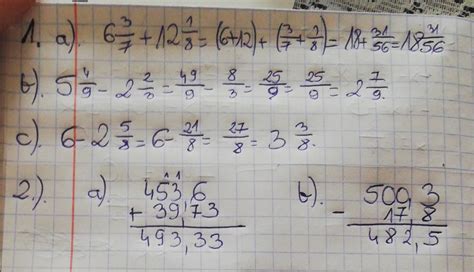 1. a). 6 3/7 + 12 1/8 = (6+12) + (3/7 + 1/8) = 18 + 31/56 = 18 31/56
b). 5 4/9 - 2 2/3 = 49/9 - 8/3 = 25/9 = 25/9 = 2 7/9.
c). 6 - 2 5/8 = 6 - 21/8 = 27/8 = 3 3/8.
2.). a). 453,6 b). 500,3
+ 39,73 - 17,8
493,33 482,5